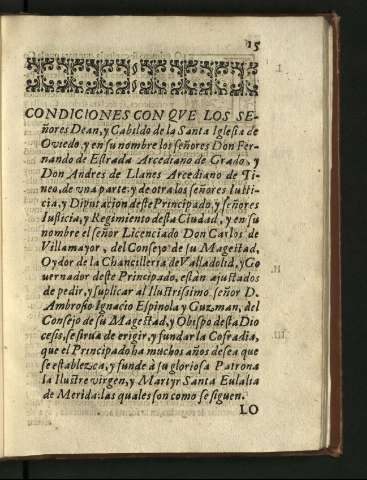 15
CONDICIONES CON QVE LOS SE-
ñores Dean, y Cabildo de la Santa Iglesia de
Oviedo, y en su nombre los señores Don Fer-
nando de Estrada Arcediano de Grado, y
Don Andres de Llanes Arcediano de Ti-
neo, de vna parte: y de otra los señores Iusti-
cia, y Diputacion deste Principado, y señores
Iusticia, y Regimiento desta Ciudad, y en su
nombre el señor Licenciado Don Carlos de
Villamayor, del Consejo de su Magestad,
Oydor de la Chancilleria de Valladolid, y Go
uernador deste Principado, están ajustados
de pedir, y suplicar al Ilustrissimo señor D.
Ambrosio Ignacio Espinola y Guzman, del
Consejo de su Magestad, y Obispo desta Dio
cesis, se sirua de erigir, y fundar la Cofradia,
que el Principado ha muchos años desea que
se establezca, y funde à su gloriosa Patrona
la Ilustre virgen, y Martyr Santa Eulalia
de Merida: las quales son como se siguen.
LO